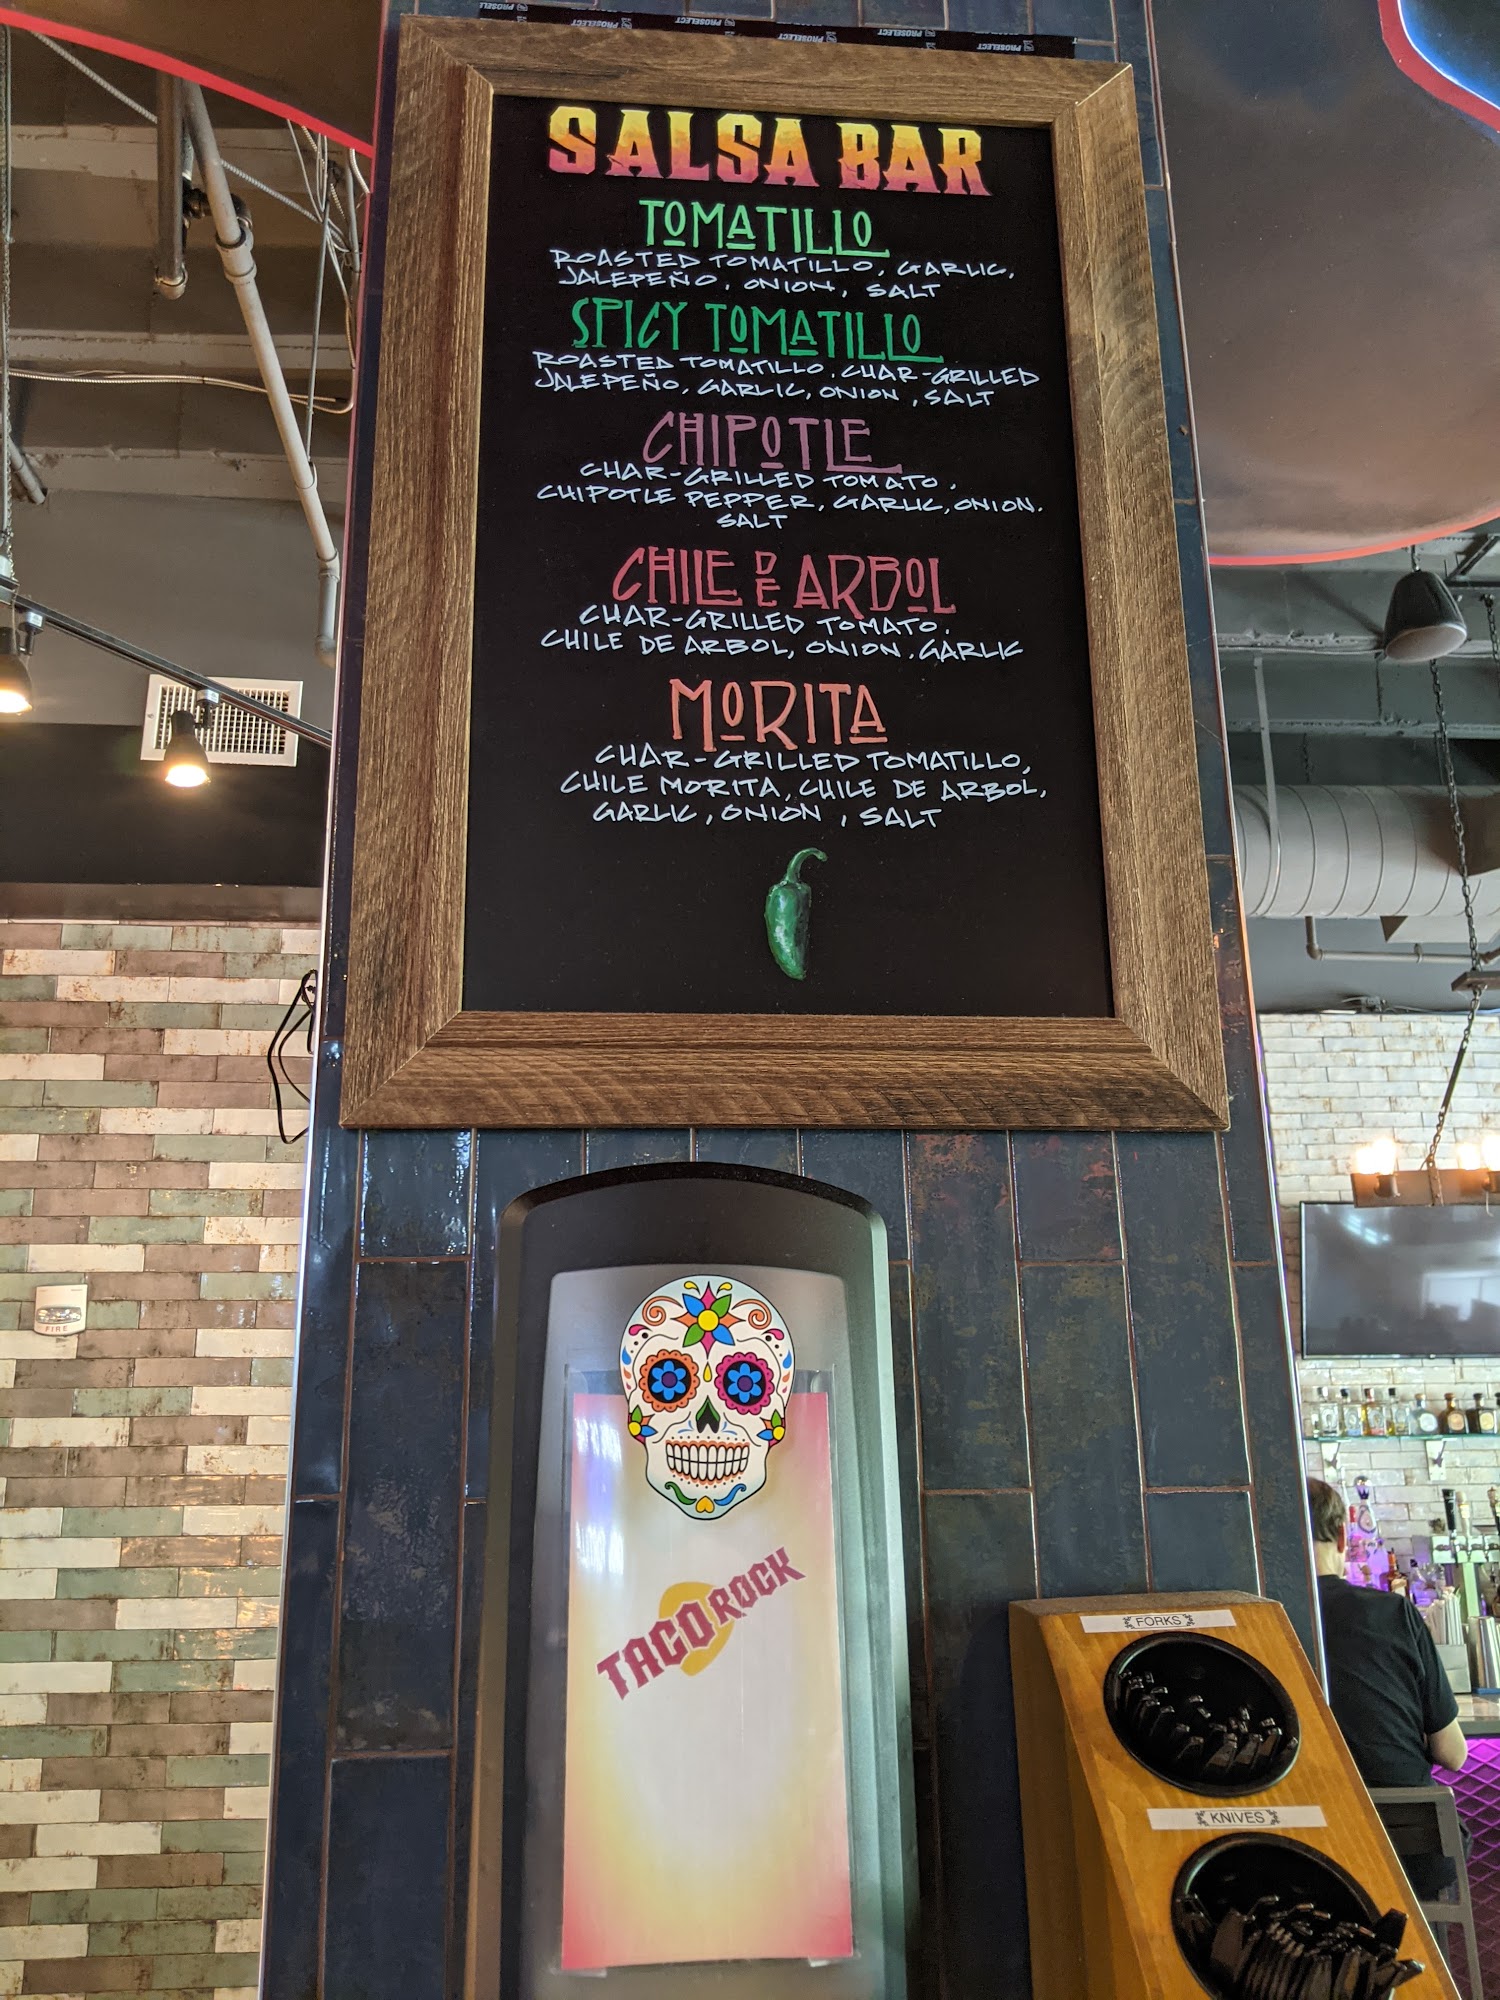 PROSELECT PROSELECT PROSELECT PROSELECT PROSELECT PROSELECT
SALSA BAR
TOMATILLO
ROASTED TOMATILLO, GARLIC,
JALEPEÑO, ONION, SALT
SPICY TOMATILLO
ROASTED TOMATILLO, CHAR-GRILLED
JALEPEÑO, GARLIC, ONION, SALT
CHIPOTLE
CHAR-GRILLED TOMATO,
CHIPOTLE PEPPER, GARLIC, ONION,
SALT
CHILE DE ARBOL
CHAR-GRILLED TOMATO,
CHILE DE ARBOL, ONION, GARLIC
MORITA
CHAR-GRILLED TOMATILLO,
CHILE MORITA, CHILE DE ARBOL,
GARLIC, ONION, SALT
FIRE
TACO ROCK
FORKS
KNIVES